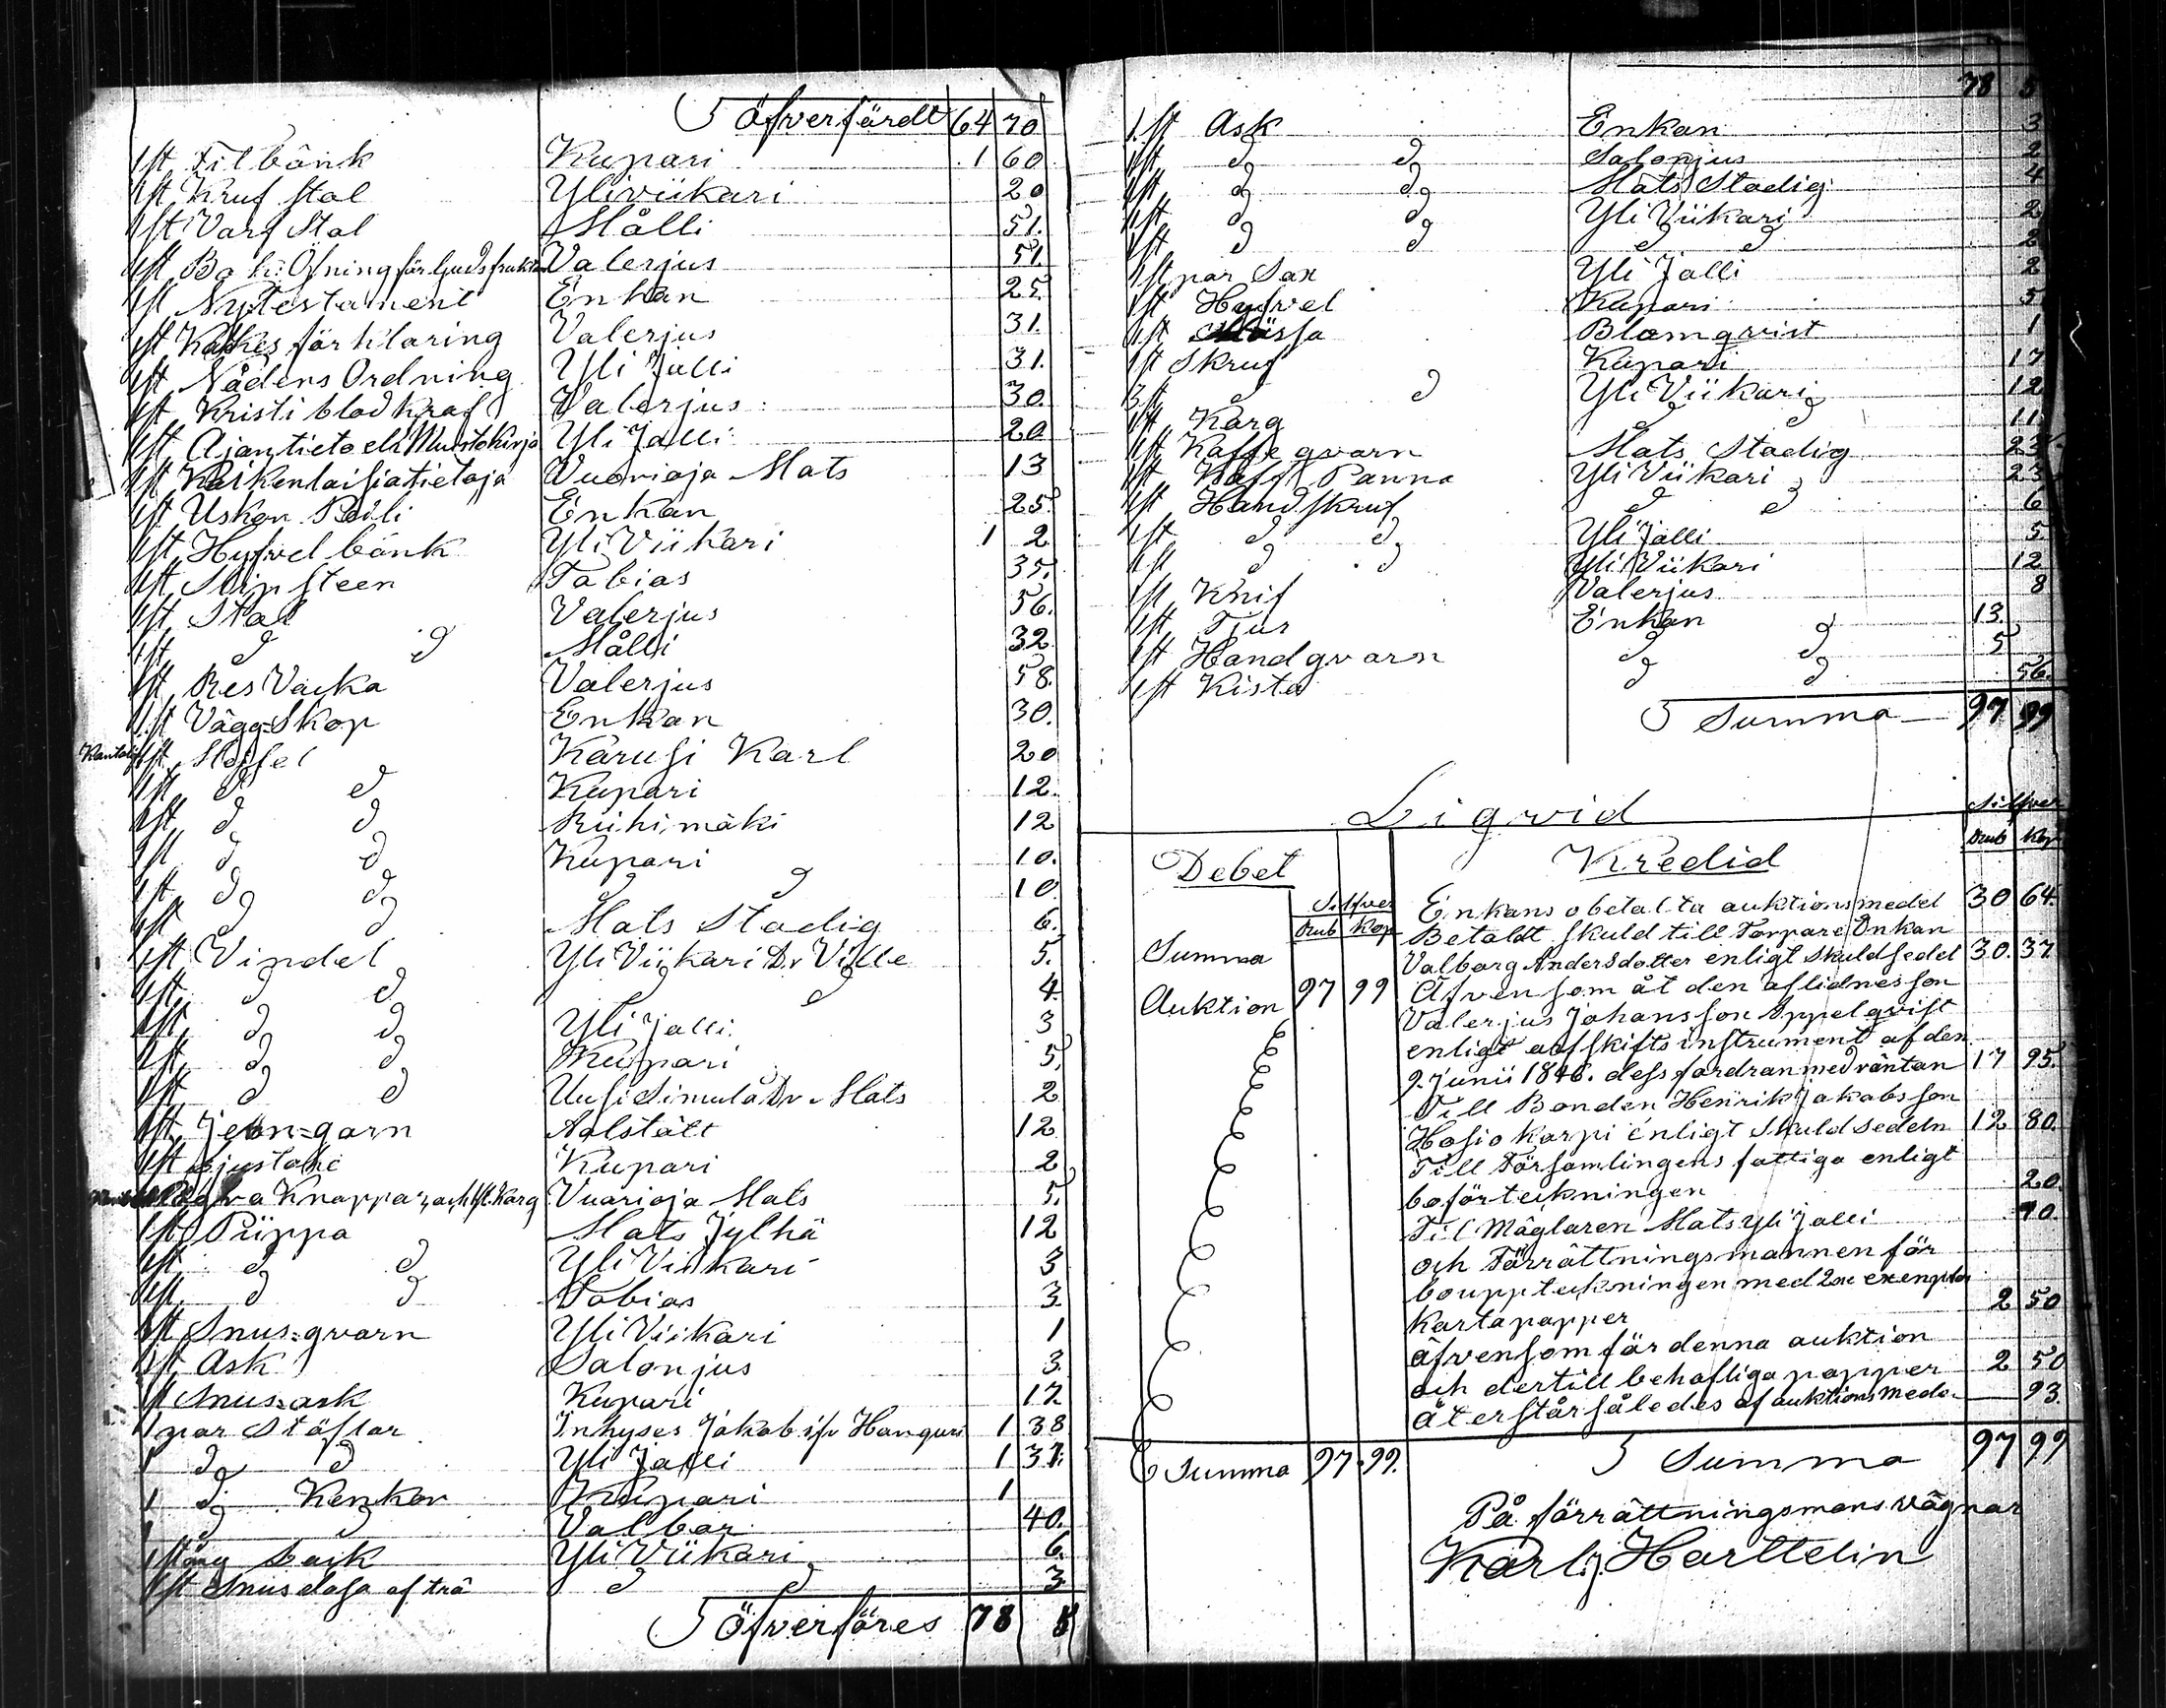 öfverfördt 64 70
1 st Filbänk Kupari 1 60
1 st Skruf stol Yliviikari 20
1 st Varf Stol Mälli 51.
1 st Bok: Öfning för Gudsfruktan Valerjus 51.
1 st Nytestament Enkan 25.
1 st förklaring Valerjus 31.
1 st Nådens Ordning Yli Jälli 31.
1 st Kristi blod Kraf Valerjus 30.
1 st Ajantieto eli Muistokirja Yli Jalli 20
1 st Kaikenlaisiatietoja Vuorioja Mats 13
1 st Uskon Peili Enkan 25.
1 st Hyfvel bänk Yli Viikari 1 2
1 st Slipsteen Tobias 35.
1 st Stol Valerjus 56.
1 st d d Mälli 32
1 st Res Väska Valerjus 58.
1 st Vägg-Skop Enkan 30.
1 st Karusi Karl 20
1 st d d Kupari 12.
1 st d d Riihimäki 12
1 st d d Kupari 10.
1 st d d d 10.
1 st d d Mats Stadig 6.
1 st Vindel Yli Viikari Dr Ville 5.
1 st d d d d 4.
1 st d d Yli Jalli 3
1 st d d Kupari 5.
1 st d d Uusisimula Dr Mats 2
1 st garn Aalstätt 12
1 st Ljustake Kupari 2
Knappar, och 1 st. Karg Vuorioja Mats 5.
1 st Piippa Mats Jylhä 12
1 st d d Yli Viikari 3
1 st d d Tobias 3.
1 st Snus=qvarn Yli Viikari 1
1 st Ask Salonjus 3.
1 st Snus=ask Kupari 12
1 par Stöflar Inhyses Jakob 1 38
1 d d Yli Jalli 1 37.
1 d Kenkor Kupari 1
1 d d Valbor 40.
1 stång Lack Yli Viikari 6.
1 st Snusdosa af trä d d 3
öfverföres 78 5
78 5
1 st Ask d Enkan 3
1 st d d Salonjus 2
1 st d d Mats Stadig 4
1 st d d Yli Viikari 2
1 st d d d d 2
1 st par Sax Yli Jalli 2
1 st Hyfvel Kupari 5
1 st Mössa Blomqvist 1
1 st Skruf Kupari 17
3 st d d Yli Viikari 12
1 st Karg d d 11.
1 st Kaffeqvarn Mats Stadig 23
1 st Kaffe Panna Yli Viikari 23
1 st Handskruf d d 6
1 st d d Yli Jalli 5
1 st d d Yli Viikari 12
1 st Knif Valerjus 8
1 st Tjur Enkan 13.
1 st Handqvarn d d 5
1 st Kista d d 56.
Summa 97 99
Liqvid
Silfver
Rub Kop
Debet
Kredid
Silfver
Rub Kop
Enkans obetalta auktionsmedel 30 64.
Betaldt skuld till Torpare Enkan
Summa
Valborg Andersdotter enligt skuldsedel 30. 37
Auktion 97 99
Äfvensom åt den aflidnes son
Valerjus Johansson Appelqvist
enligt arfskifts instrument af den
9. Junii 1846. dess fordran med räntan 17 95.
Till Bonden Henrik Jakobsson
Hosiokarpi enligt skuldsedeln 12 80.
Till Församlingens fattiga enligt
boförteckningen 20.
Til Mäglaren Mats Yli Jalli 10.
och Förrättningsmannen för
bouppteckningen med 2ne exemplar
kartapapper 2 50
äfvensom för denna auktion
och dertill behöfliga papper 2 50
Återstår således af auktions medo. 93.
Summa 97 99.
Summa 97 99
På förrättningsmans vägnar
Karl J. Harttelin